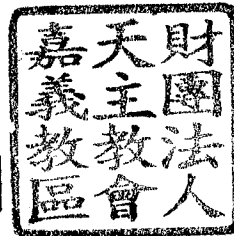 財團法人
天主教會
嘉義教區